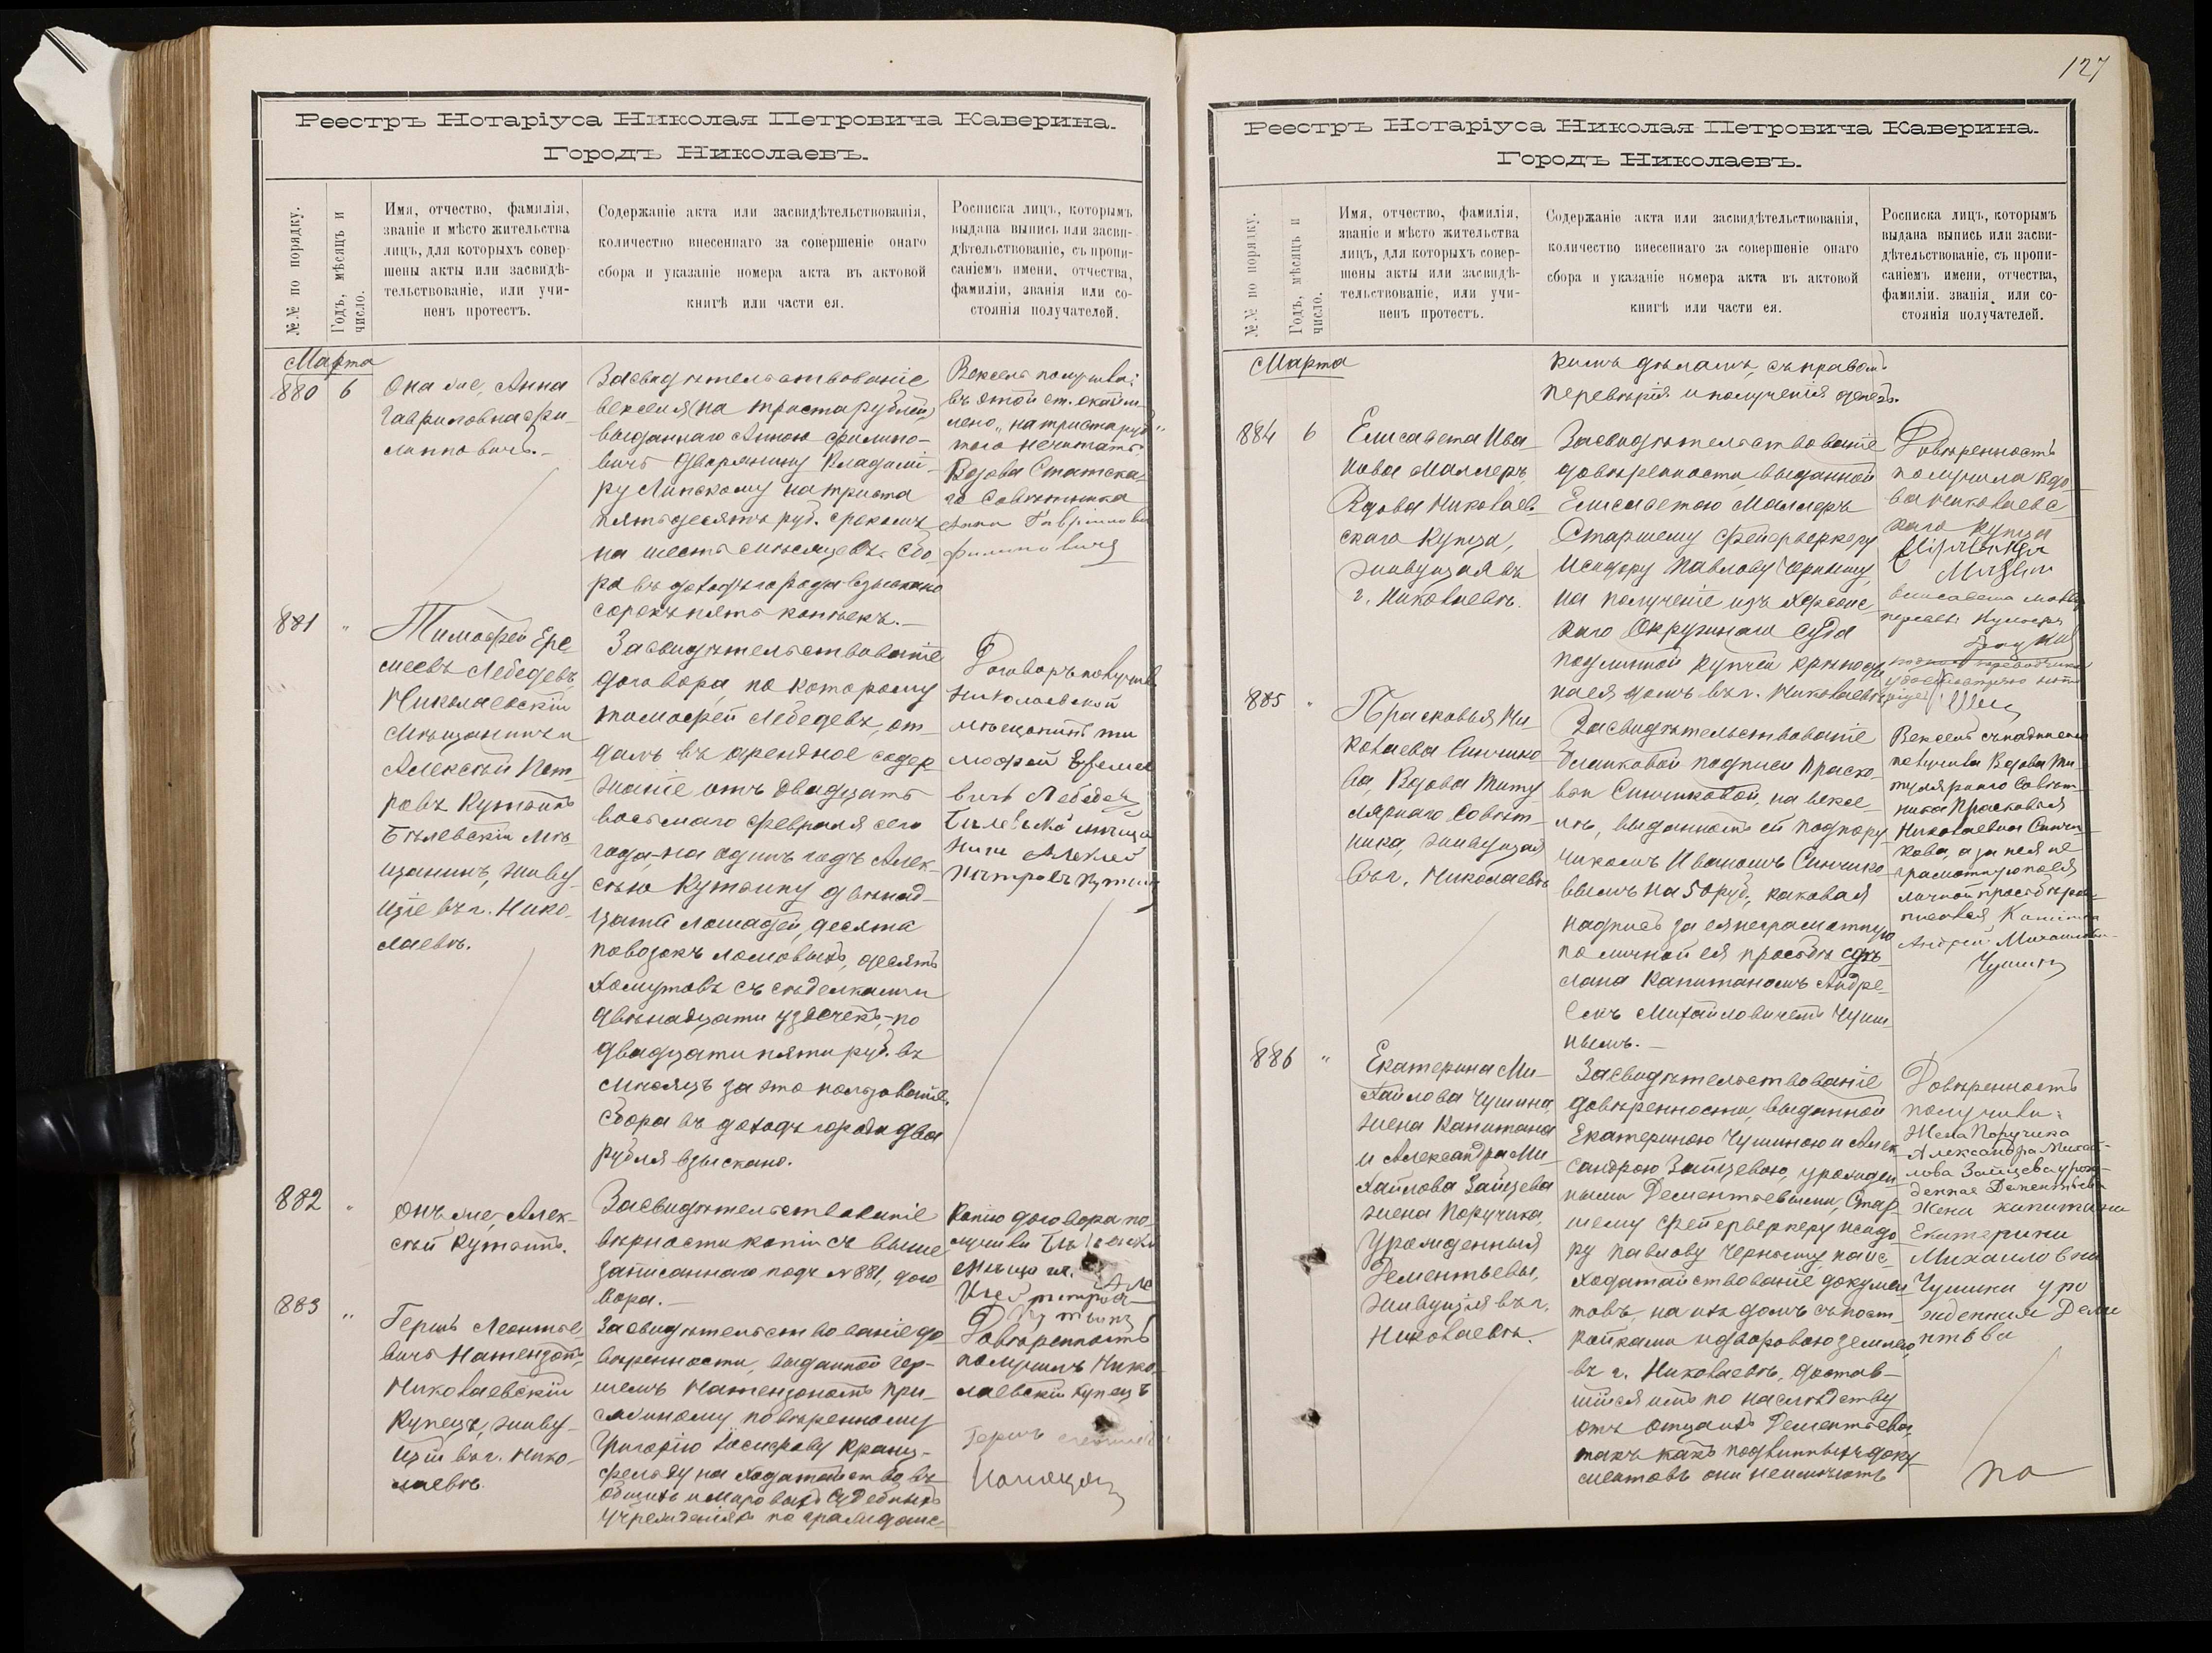 Реестръ Нотаріуса Николая Петровича Каверина.
Городъ Николаевъ.
№.№ по порядку.
Годъ, мѣсяцъ и
число.
Имя, отчество, фамилія,
званіе и мѣсто жительства
лицъ, для которыхъ совер-
шены акты или засвидѣ-
тельствованіе, или учи-
ненъ протестъ.
Содержаніе акта или засвидѣтельствованія,
количество внесеннаго за совершеніе онаго
сбора и указаніе номера акта въ актовой
книгѣ или части ея.
Росписка лицъ, которымъ
выдана выпись или засви-
дѣтельствованіе, съ пропи-
саніемъ имени, отчества,
фамиліи, званія или со-
стоянія получателей.
Марта
880 6
Она же, Анна
Гавриловна Фи-
липповичъ.-
Засвидѣтельствованіе
векселя (на триста рублей)
выданнаго Анною Филипо-
вичъ Дворянину Владимі-
ру Липскому на триста
пятьдесятъ руб. срокомъ
на шесть мѣсяцевъ. Сбо-
ра въ доходъ города взыскано
сорокъ пять копѣекъ.-
Вексель получила:
въ этой ст.
„на триста руб“
того не читать
Вдова Статска-
го Совѣтника
Анна Гаврилова
Филиповичъ
881 "
Тимофей Ере-
меевъ Лебедевъ
Николаевскій
Мѣщанинъ и
Алексѣй Пет-
ровъ Кутѣинъ
Бѣлевскій Мѣ-
щанинъ, живу-
щіе въ г. Нико-
лаевѣ.
Засвидѣтельствованіе
договора, по которому
Тимофей Лебедевъ, от-
далъ въ арендное содер-
жаніе отъ двадцать
восьмаго Февраля сего
года, на одинъ годъ Алек-
сѣю Кутѣину двѣнад-
цать лошадей, десять
повозокъ ломовыхъ, десять
хомутовъ съ сѣделками
двѣнадцати уздечекъ,-по
двадцати пяти руб. въ
мѣсяцъ за это пользованіе.
Сбора въ доходъ города два
рубля взыскано.
Договоръ получили
Николаевской
мѣщанинъ Ти
мофей Ереме
вичъ Лебедевъ
Белевской мѣща
нинъ Алексей
Петровъ Кутеинъ
882 "
Онъ же, Алек-
сѣй Кутѣинъ.
Засвидѣтельствованіе
вѣрности копіи съ выше
записаннаго подъ № 881, дого
вора.-
Копію договора по-
лучилъ
883 "
Гершъ Леонтье-
вичъ Натензонъ,
Николаевскій
Купецъ, живу-
щій въ г. Нико-
лаевѣ.
Засвидѣтельствованіе до-
вѣренности, выданной Гер-
шемъ Натензономъ при-
сяжному повѣренному
Григорію Іосифову Кранц-
фельду на ходатайство въ
общихъ и мировыхъ судебныхъ
учрежденіяхъ по граждане-
Довѣренность
получилъ Нико-
лаевскій Купецъ
Гершъ
127
Реестръ Нотаріуса Николая Петровича Каверина.
Городъ Николаевъ.
№.№ по порядку.
Годъ, мѣсяцъ и
число.
Имя, отчество, фамилія,
званіе и мѣсто жительства
лицъ, для которыхъ совер-
шены акты или засвидѣ-
тельствованіе, или учи-
ненъ протестъ.
Содержаніе акта или засвидѣтельствованія,
количество внесеннаго за совершеніе онаго
сбора и указаніе номера акта въ актовой
книгѣ или части ея.
Росписка лицъ, которымъ
выдана выпись или засви-
дѣтельствованіе, съ пропи-
саніемъ имени, отчества,
фамиліи. званія или со-
стоянія получателей.
Марта
кимъ дѣламъ, съ правомъ
перевѣрія и полученія денегъ.
884 6
Елисавета Ива-
нова Маллеръ,
Вдова Николаев-
скаго Купца,
живущая въ
г. Николаевѣ.
Засвидѣтельствованіе
довѣренности, выданной
Елисаветою Маллеръ
Старшему Фейерверкеру
Исидору Павлову Черныму,
на полученіе изъ Херсонс-
каго Окружнаго Суда
подлинной купчей крѣпости
на ея домъ въ г. Николаевѣ.
Довѣренность
получила вдо-
ва Николаевс-
каго Купца
885 "
Прасковья Ни-
колаева Синчико-
ва, Вдова Титу-
лярнаго Совѣт-
ника, живущая
въ г. Николаевѣ
Засвидѣтельствованіе
бланковой подписи Праско-
вьи Синчиковой, на вексе-
лѣ, выданномъ ей подпору-
чикомъ Иваномъ Синчико-
вымъ на 50 руб., каковая
надпись за ея неграмотную
по личной ея просьбѣ сдѣ-
лана Капитаномъ Андре-
емъ Михайловичемъ Чуши-
нымъ.-
Вексель съ надписью
получила Вдова Ти-
тулярнаго Совѣт-
ника Прасковья
Николаевна Синчи-
кова, а за нея не
грамотную по ея
личной просьбѣ рос-
писался Капитанъ
Андрей Михаилови-
Чушинъ
886 "
Екатерина Ми-
хайлова Чушина,
жена Капитана
и Александра Ми-
хайлова Зайцева
жена Поручика,
урожденныя
Дементьевы,
живущія въ г.
Николаевѣ.
Засвидѣтельствованіе
довѣренности, выданной
Екатериною Чушиною и Алек-
сандрою Зайцевою, урожден-
ными Дементьевыми, Стар-
шему Фейерверкеру Исидо-
ру Павлову Черному, на ис-
ходатайствованіе докумен-
товъ, на ихъ домъ съ пост-
ройками и дворовою землею,
въ г. Николаевѣ, достав-
шійся имъ по наслѣдству
отъ отца ихъ Дементьева,
такъ какъ подлинныхъ доку-
ментовъ они не имѣютъ
Довѣренность
получили:
Жена Поручика
Александра Михай-
лова Зайцева урож-
денная Дементьева
Жена капитана
Екатерина
Михаиловна
Чушина уро
жденная Деме
нтьва
по